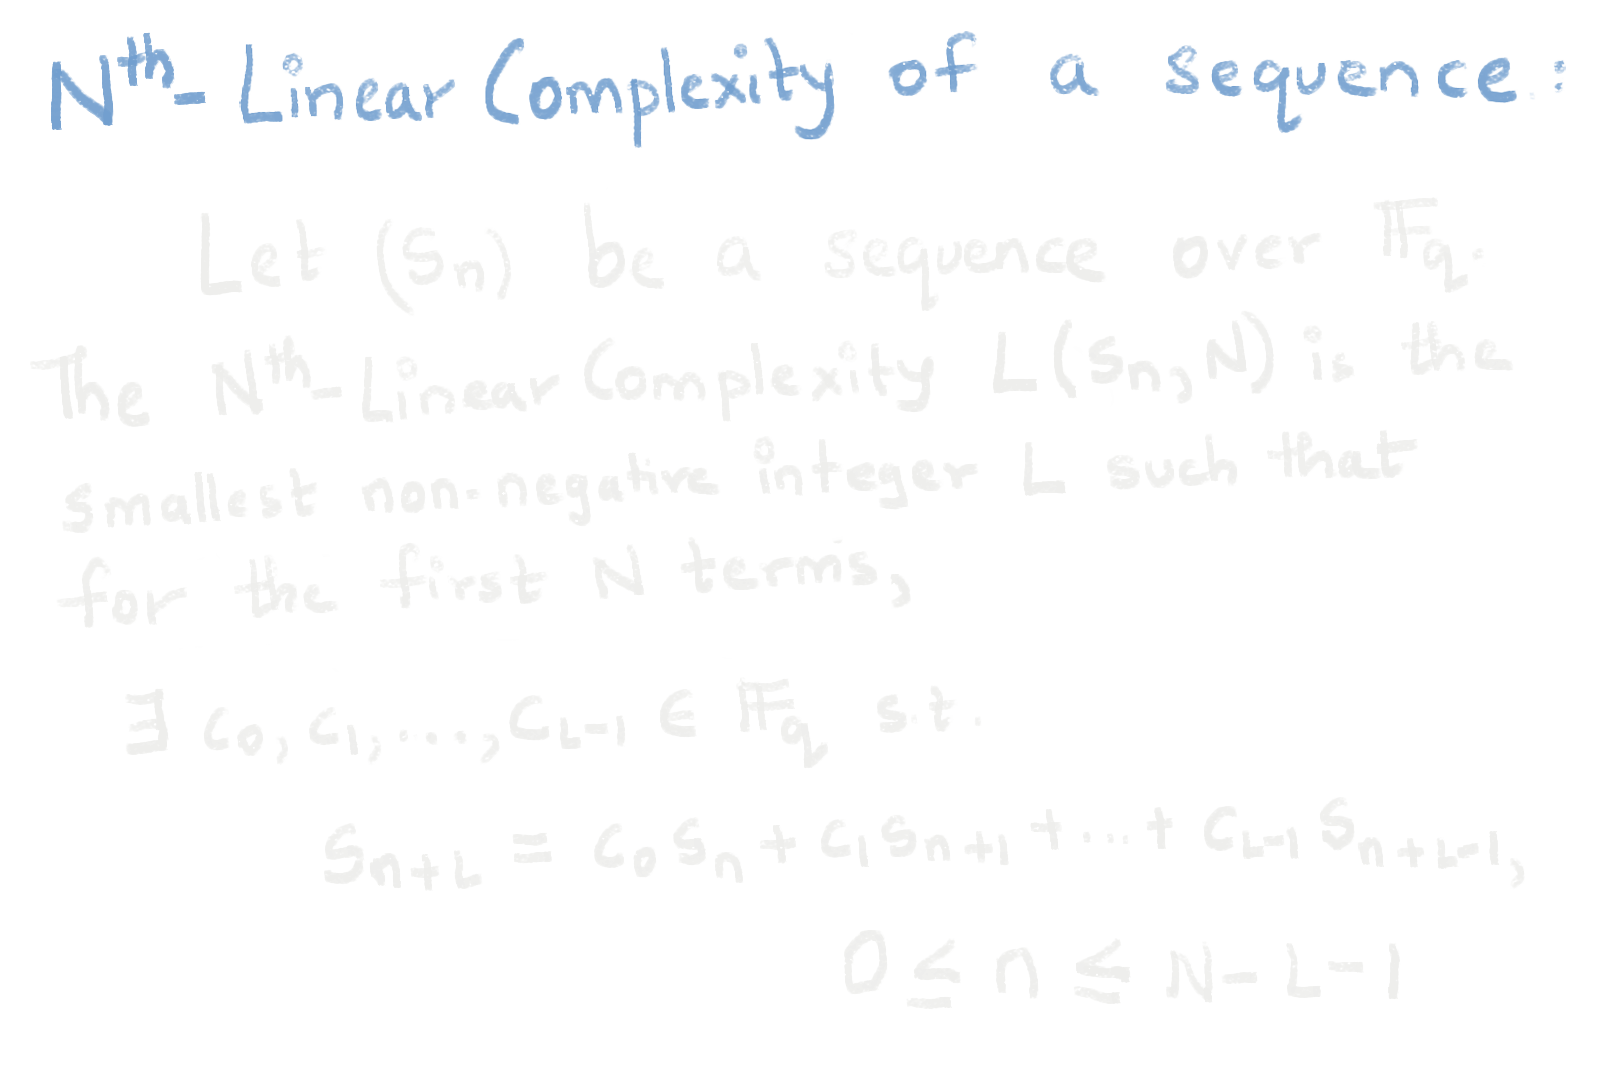 Nth- Linear Complexity of a sequence:
Let (Sn) be a sequence over 𝔽q.
The Nth-Linear Complexity L(Sn, N) is the
smallest non-negative integer L such that
for the first N terms,
∃ c0, c1, ..., cL-1 ∈ 𝔽q s.t.
Sn+L = c0 Sn + c1 Sn+1 + ... + cL-1 Sn+L-1,
0 ≤ n ≤ N-L-1